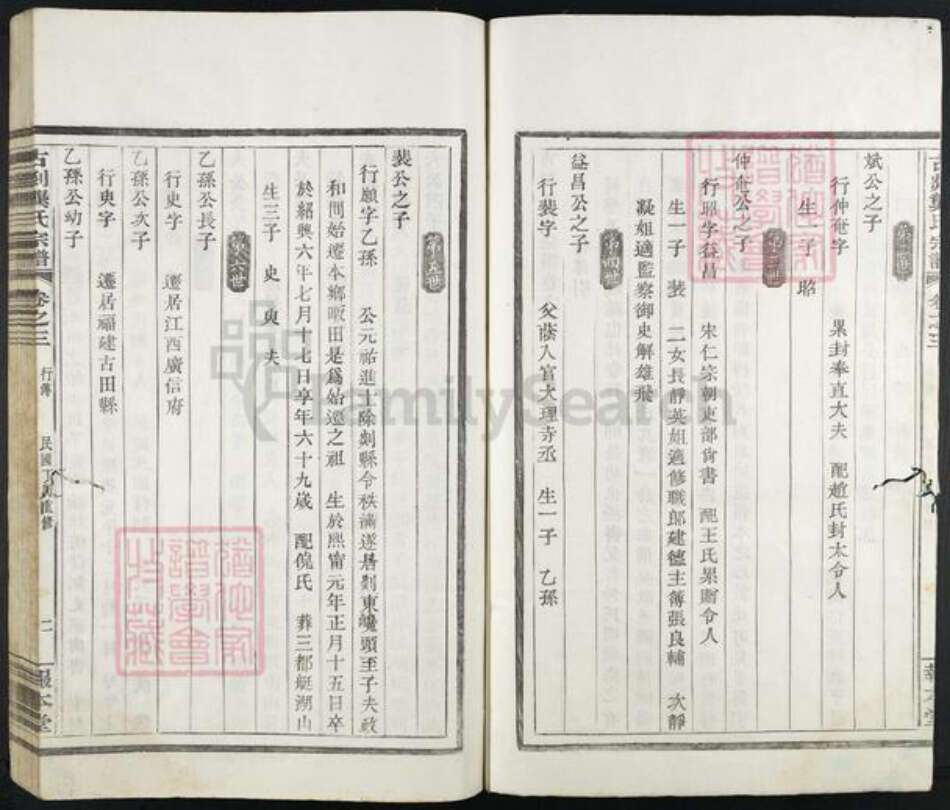 斌公之子
行仲奄字 累封奉直大夫 配趙氏封太令人
生一子 昭
仲奄公之子
行昭字益昌 宋仁宗朝吏部尚書 配王氏累贈令人
生一子 裴 二女長靜英姐適修職郎建德主簿張良輔 次靜
凝姐適監察御史解雄飛
第四世
益昌公之子
行裴字 父蔭入官大理寺丞 生一子 乙孫
第五世
裴公之子
行願字乙孫 公元祐進士除剡縣令秩滿遂居剡東 頭至子夫政
和間始遷本鄉 田是為始遷之祖 生於熙甯元年正月十五日卒
於紹興六年七月十七日享年六十九歲 配 氏 葬三都艇湖山
生三子 史 臾 夫
第六世
乙孫公長子
行史字 遷居江西廣信府
乙孫公次子
行臾字 遷居福建古田縣
乙孫公幼子
古剡 氏宗譜 卷之三 行傳 民國丁 重修 二 報本堂
FamilySearch